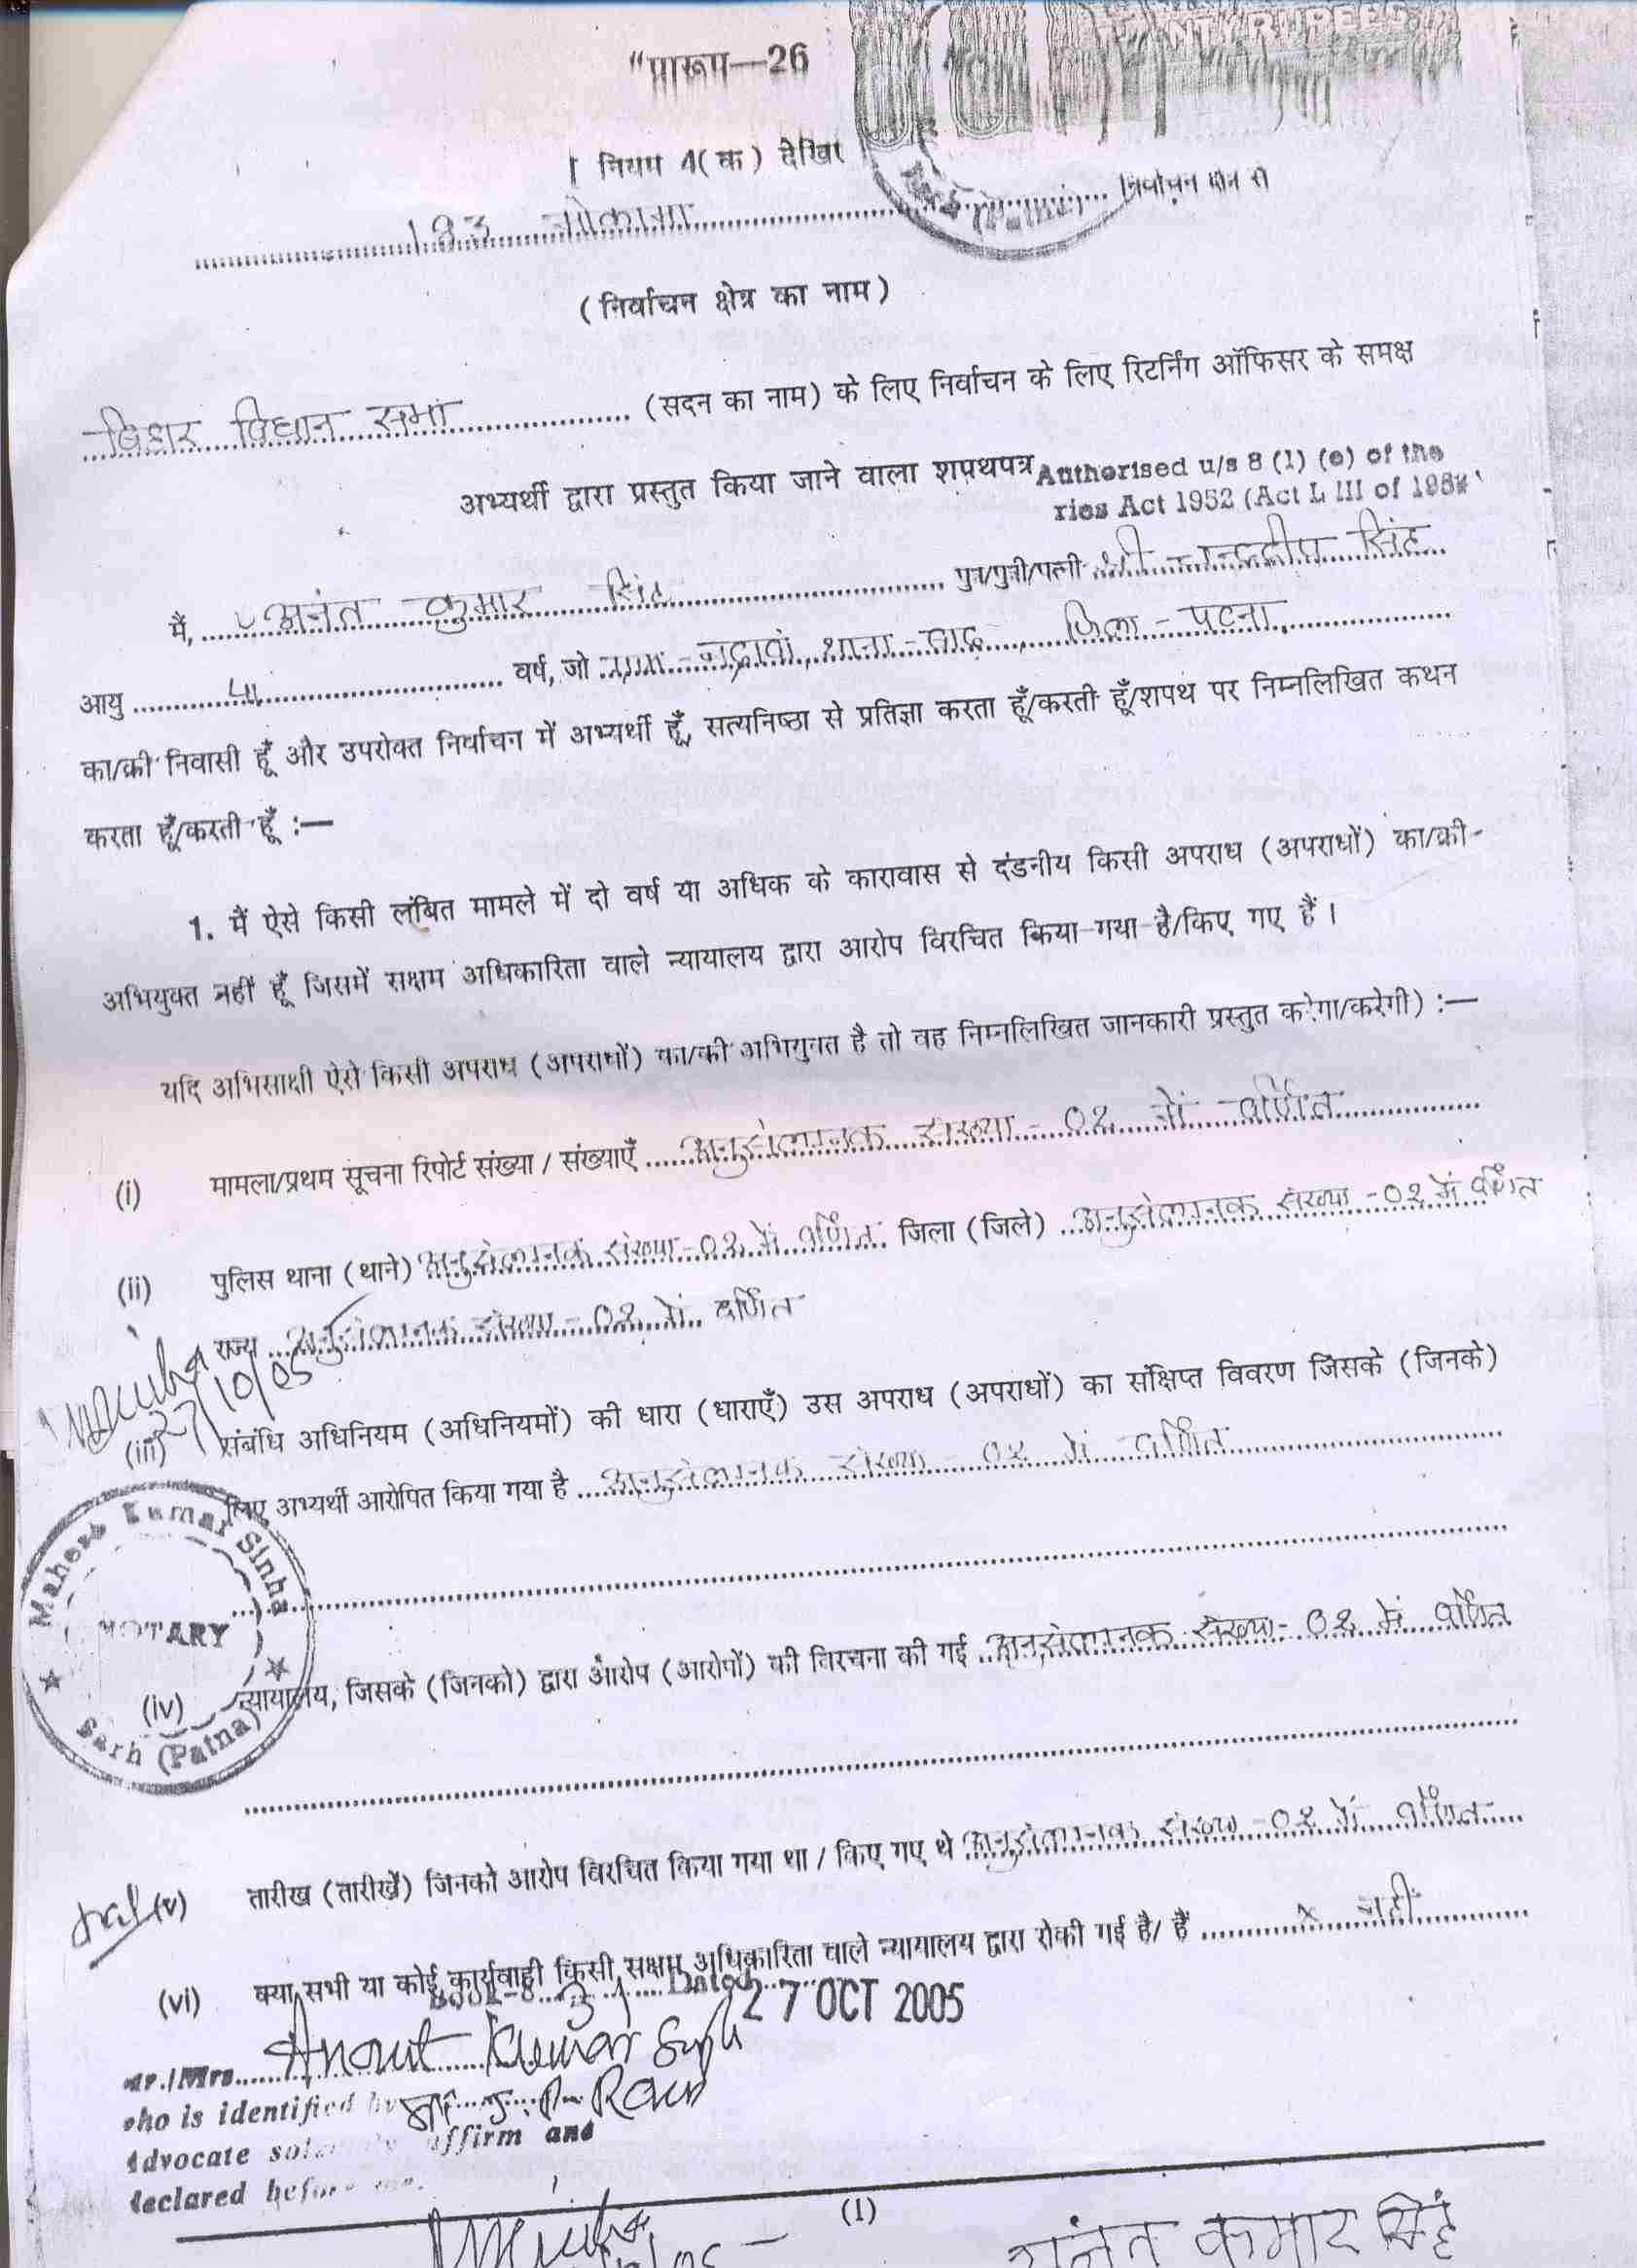 "प्रारूप—26
[ नियम 4(क) देखिए
183 मोकामा निर्वाचन क्षेत्र से
(निर्वाचन क्षेत्र का नाम)
बिहार विधान सभा (सदन का नाम) के लिए निर्वाचन के लिए रिटर्निंग ऑफिसर के समक्ष
अभ्यर्थी द्वारा प्रस्तुत किया जाने वाला शपथपत्र
Authorised u/s 8 (1) (e) of the
ries Act 1952 (Act L III of 1952
मैं, अनंत कुमार सिंह पुत्र/पुत्री/पत्नी श्री चन्द्रदीप सिंह
आयु वर्ष, जो ग्राम - नदावां, थाना - बाढ़, जिला - पटना,
का/की निवासी हूँ और उपरोक्त निर्वाचन में अभ्यर्थी हूँ, सत्यनिष्ठा से प्रतिज्ञा करता हूँ/करती हूँ/शपथ पर निम्नलिखित कथन
करता हूँ/करती हूँ :—
1. मैं ऐसे किसी लंबित मामले में दो वर्ष या अधिक के कारावास से दंडनीय किसी अपराध (अपराधों) का/की
अभियुक्त नहीं हूँ जिसमें सक्षम अधिकारिता वाले न्यायालय द्वारा आरोप विरचित किया गया है/किए गए हैं।
यदि अभिसाक्षी ऐसे किसी अपराध (अपराधों) का/की अभियुक्त है तो वह निम्नलिखित जानकारी प्रस्तुत करेगा/करेगी) :—
(i) मामला/प्रथम सूचना रिपोर्ट संख्या / संख्याएँ अनुसंलग्नक संख्या - 02 में वर्णित
(ii) पुलिस थाना (थाने) अनुसंलग्नक संख्या - 02 में वर्णित जिला (जिले) अनुसंलग्नक संख्या - 02 में वर्णित
राज्य अनुसंलग्नक संख्या - 02 में वर्णित
27/10/05
(iii) संबंधि अधिनियम (अधिनियमों) की धारा (धाराएँ) उस अपराध (अपराधों) का संक्षिप्त विवरण जिसके (जिनके)
लिए अभ्यर्थी आरोपित किया गया है अनुसंलग्नक संख्या - 02 में वर्णित
Mahesh Kumar Sinha
NOTARY
Barh (Patna)
(iv) न्यायालय, जिसके (जिनको) द्वारा आरोप (आरोपों) की विरचना की गई अनुसंलग्नक संख्या - 02 में वर्णित
(v) तारीख (तारीखें) जिनको आरोप विरचित किया गया था / किए गए थे अनुसंलग्नक संख्या - 02 में वर्णित
(vi) क्या सभी या कोई कार्यवाही किसी सक्षम अधिकारिता वाले न्यायालय द्वारा रोकी गई है/ हैं x नहीं
Dated 27 OCT 2005
Mr./Mrs. Anant Kumar Singh
who is identified by
Advocate solemnly affirm and
declared before me.
(1)
अनंत कुमार सिंह